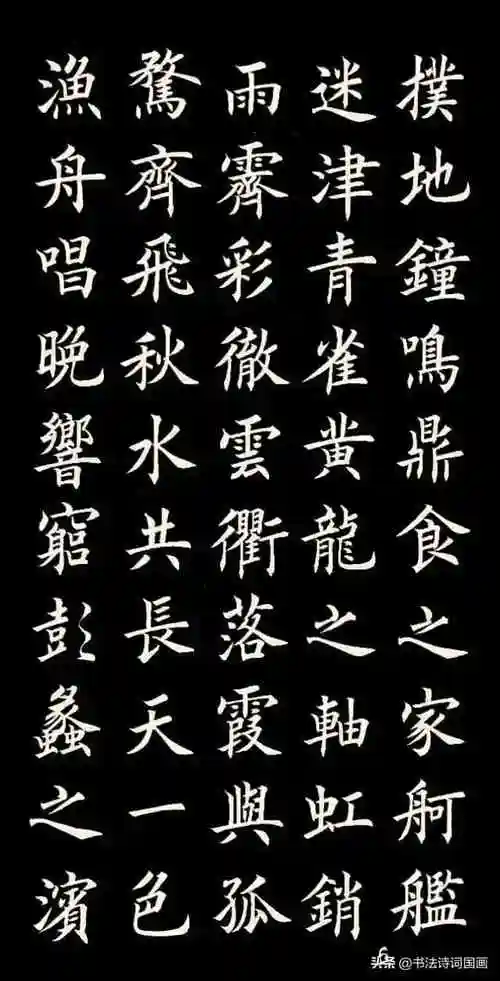 撲地鐘鳴鼎食之家舸艦
迷津青雀黄龍之軸虹銷
雨霽彩徹雲衢落霞與孤
鶩齊飛秋水共長天一色
漁舟唱晚響窮彭蠡之濱
头条@书法诗词国画